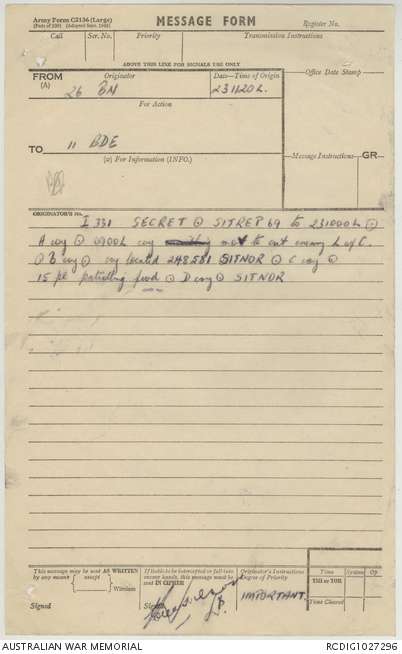 Army Form C2136 (Large)
(Pads of 100) (Adopted Sept. 1942)
MESSAGE FORM
Register No.
Call Ser. No. Priority Transmission Instructions
ABOVE THIS LINE FOR SIGNALS USE ONLY
FROM (A) Originator Date–Time of Origin Office Date Stamp
26 BN 231120L
For Action
TO 11 BDE
(z) For Information (INFO.) Message Instructions GR
ORIGINATOR'S No.
I 331 SECRET ⊙ SITREP 69 to 231000L ⊙
A coy ⊙ 0900L coy moved to cut enemy L of C.
⊙ B coy ⊙ coy located 248581 SITNOR ⊙ C coy ⊙
15 pl patrolling fwd ⊙ D coy ⊙ SITNOR
This message may be sent AS WRITTEN by any means (except) Wireless
Signed
If liable to be intercepted or fall into enemy hands, this message must be sent IN CIPHER
Signed
Originator's Instructions
Degree of Priority
IMPORTANT.
Time System Op
THI or TOR
Time Cleared
AUSTRALIAN WAR MEMORIAL
RCDIG1027296